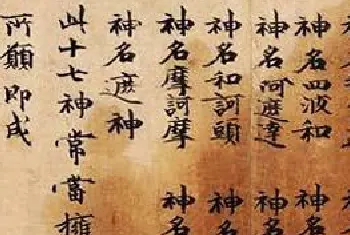 神名四波和　神名
神名阿遮達　神名
神名和訶頭　神名
神名摩訶摩　神名
神名遮神
此十七神常當擁
所願即成